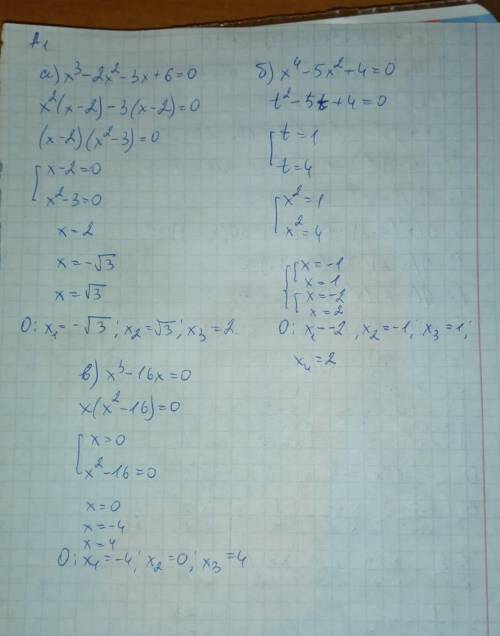 A1
а) x³-2x²-3x+6=0
x²(x-2)-3(x-2)=0
(x-2)(x²-3)=0
[x-2=0
x²-3=0
x=2
x=-√3
x=√3
O: x₁=-√3; x₂=√3; x₃=2.
б) x⁴-5x²+4=0
t²-5t+4=0
[t=1
t=4
[x²=1
x²=4
[[x=-1
x=1
[x=-2
x=2
O: x₁=-2, x₂=-1; x₃=1;
x₄=2
в) x³-16x=0
x(x²-16)=0
[x=0
x²-16=0
x=0
x=-4
x=4
O: x₁=-4; x₂=0; x₃=4